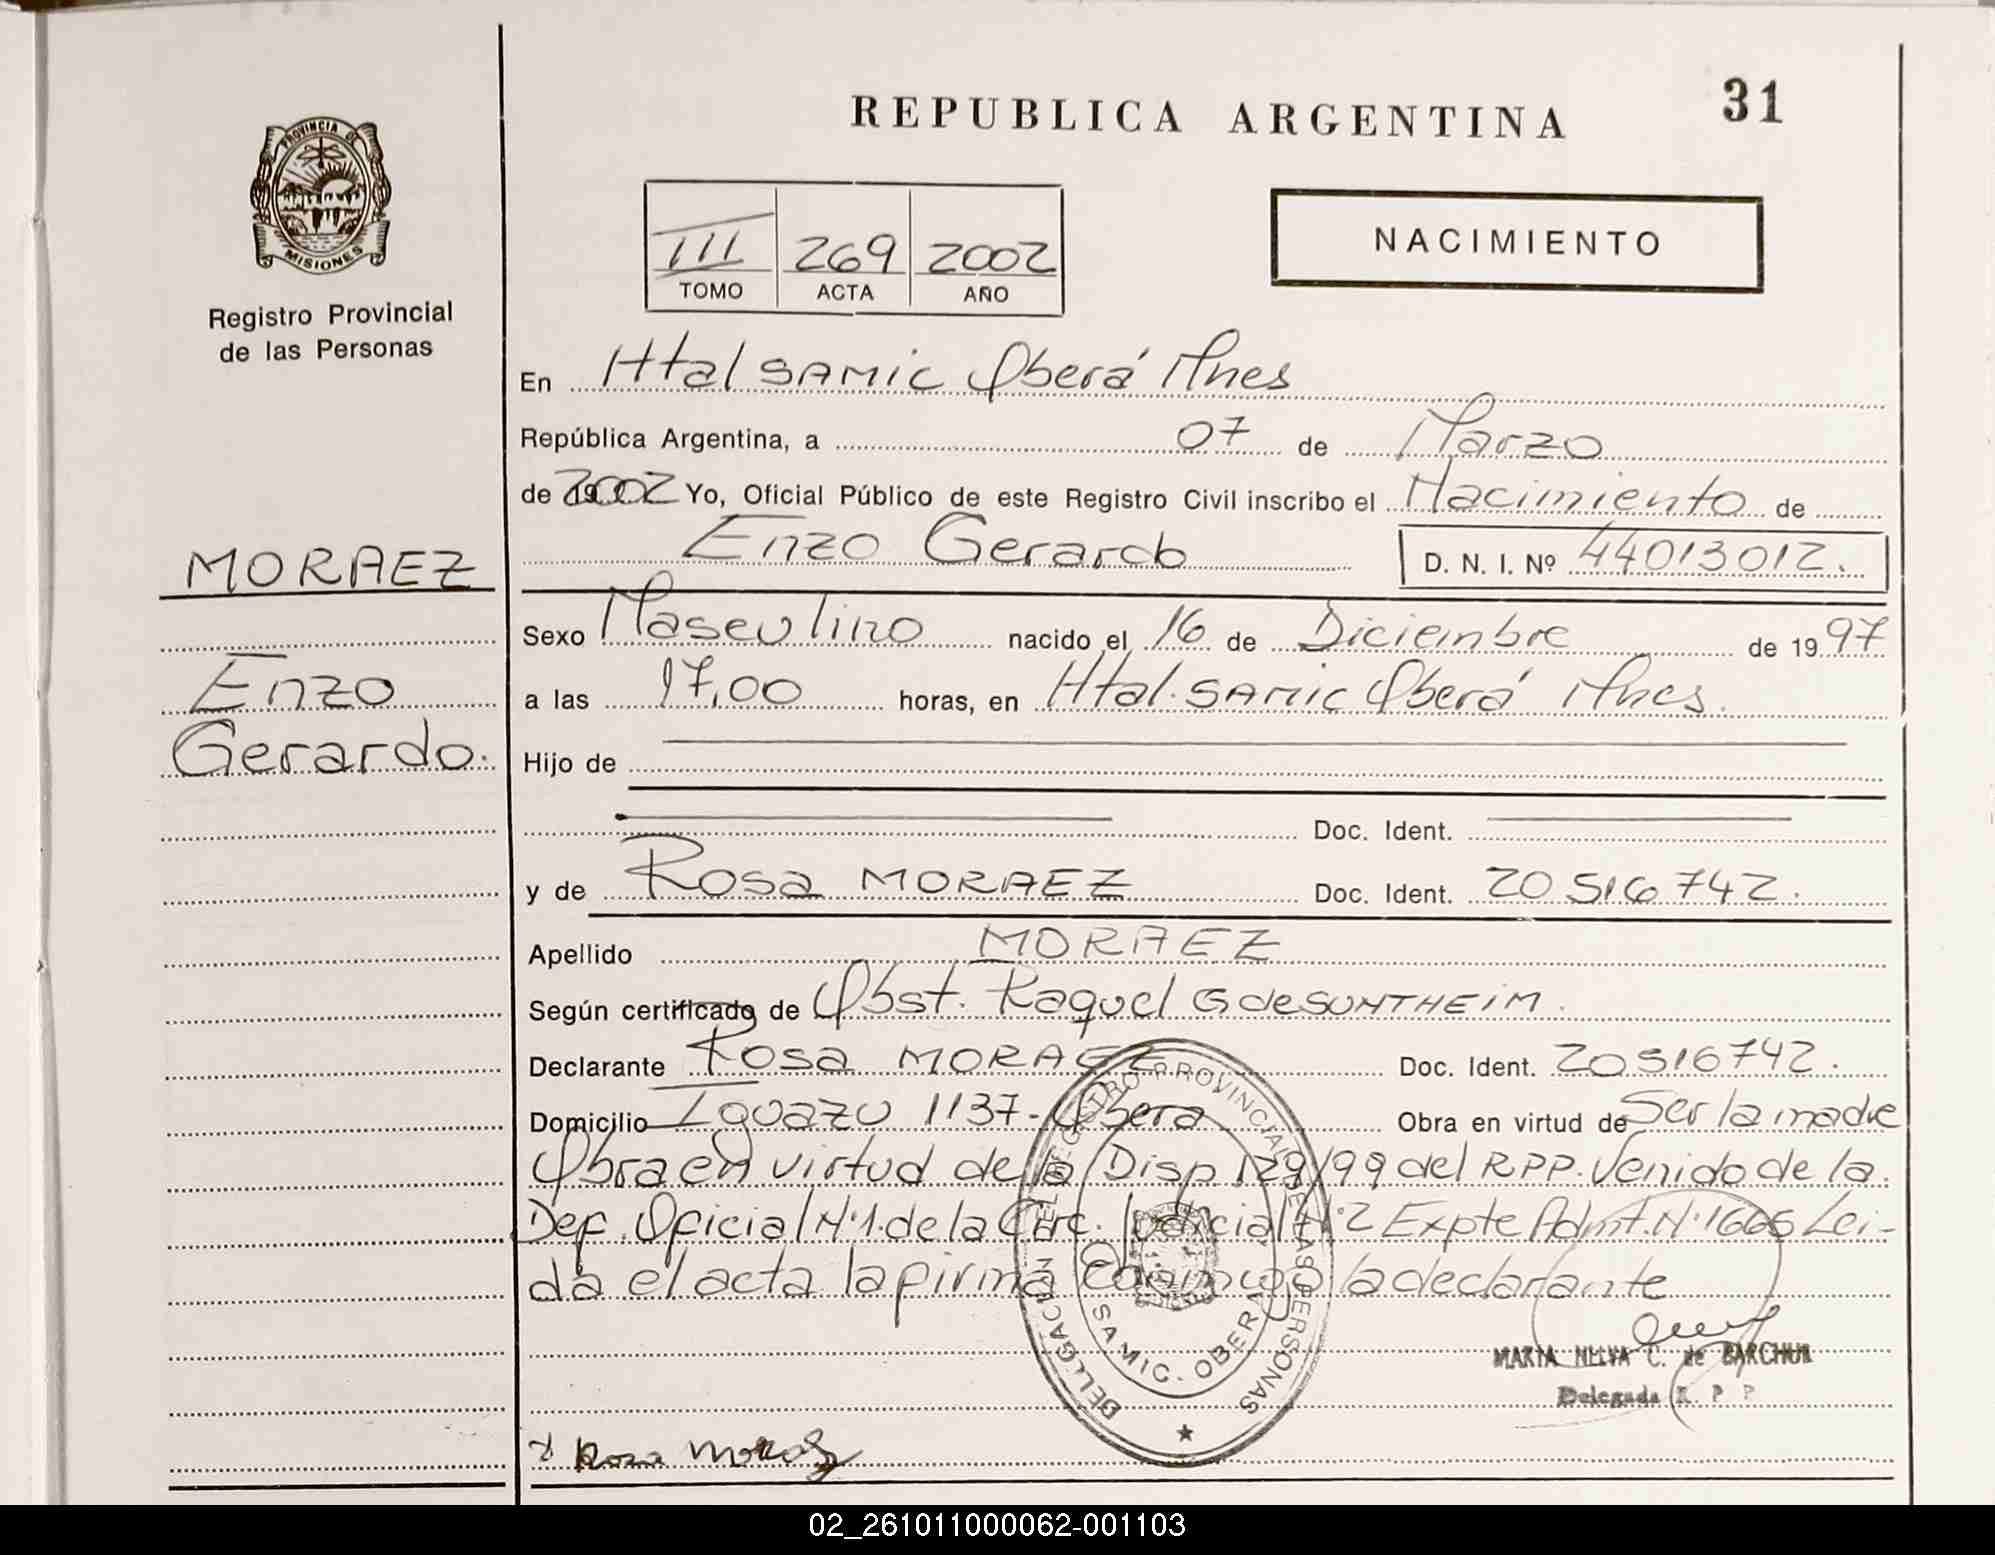 REPUBLICA ARGENTINA
31
PROVINCIA DE
MISIONES
Registro Provincial
de las Personas
III 269 2002
TOMO ACTA AÑO
NACIMIENTO
En Htal SAMIC Oberá Mnes
República Argentina, a 07 de Marzo
de 2002 Yo, Oficial Público de este Registro Civil inscribo el Nacimiento de
Enzo Gerardo D. N. I. Nº 44013012.
MORAEZ
Enzo
Gerardo.
Sexo Masculino nacido el 16 de Diciembre de 1997
a las 17,00 horas, en Htal. SAMIC Oberá Mnes.
Hijo de
Doc. Ident.
y de Rosa MORAEZ Doc. Ident. 20516742.
Apellido MORAEZ
Según certificado de Obst. Raquel G de SUNTHEIM.
Declarante Rosa MORAEZ Doc. Ident. 20516742.
Domicilio Iguazu 1137- Obera Obra en virtud de Ser la madre
Obra en virtud de la Disp 129/99 del RPP. Venido de la
Def. Oficial N·1. de la Circ. Judicial N·2 Expte Admt. N·1665 Lei-
da el acta la firma conmigo la declarante
DELEGACION DEL REGISTRO PROVINCIAL DE LAS PERSONAS
SAMIC - OBERA
MARIA NELVA C. de BARCHUK
Delegada R. P. P.
Rosa Moraez
02_261011000062-001103